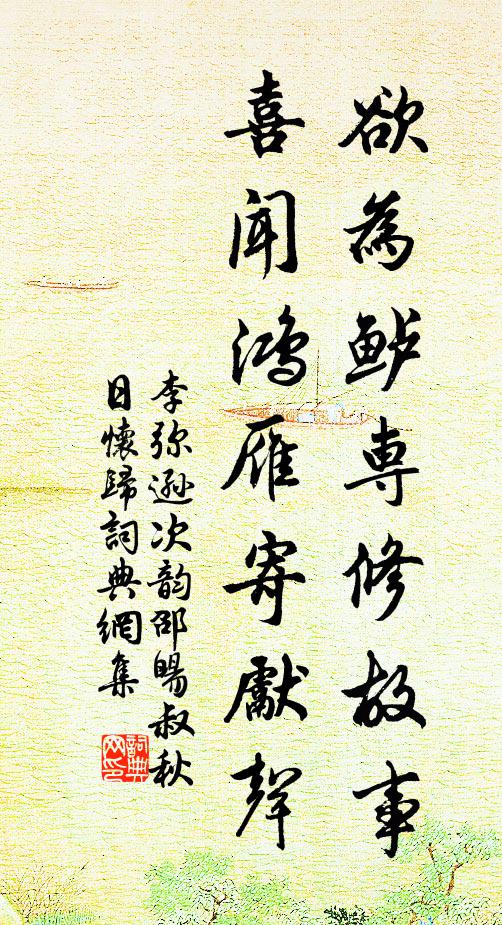 欲為鲈専修故事
喜闻鴻雁寄獻聲
李弥遜次韵邵暘叔秋
日懷歸詞典網集
詞典
网印